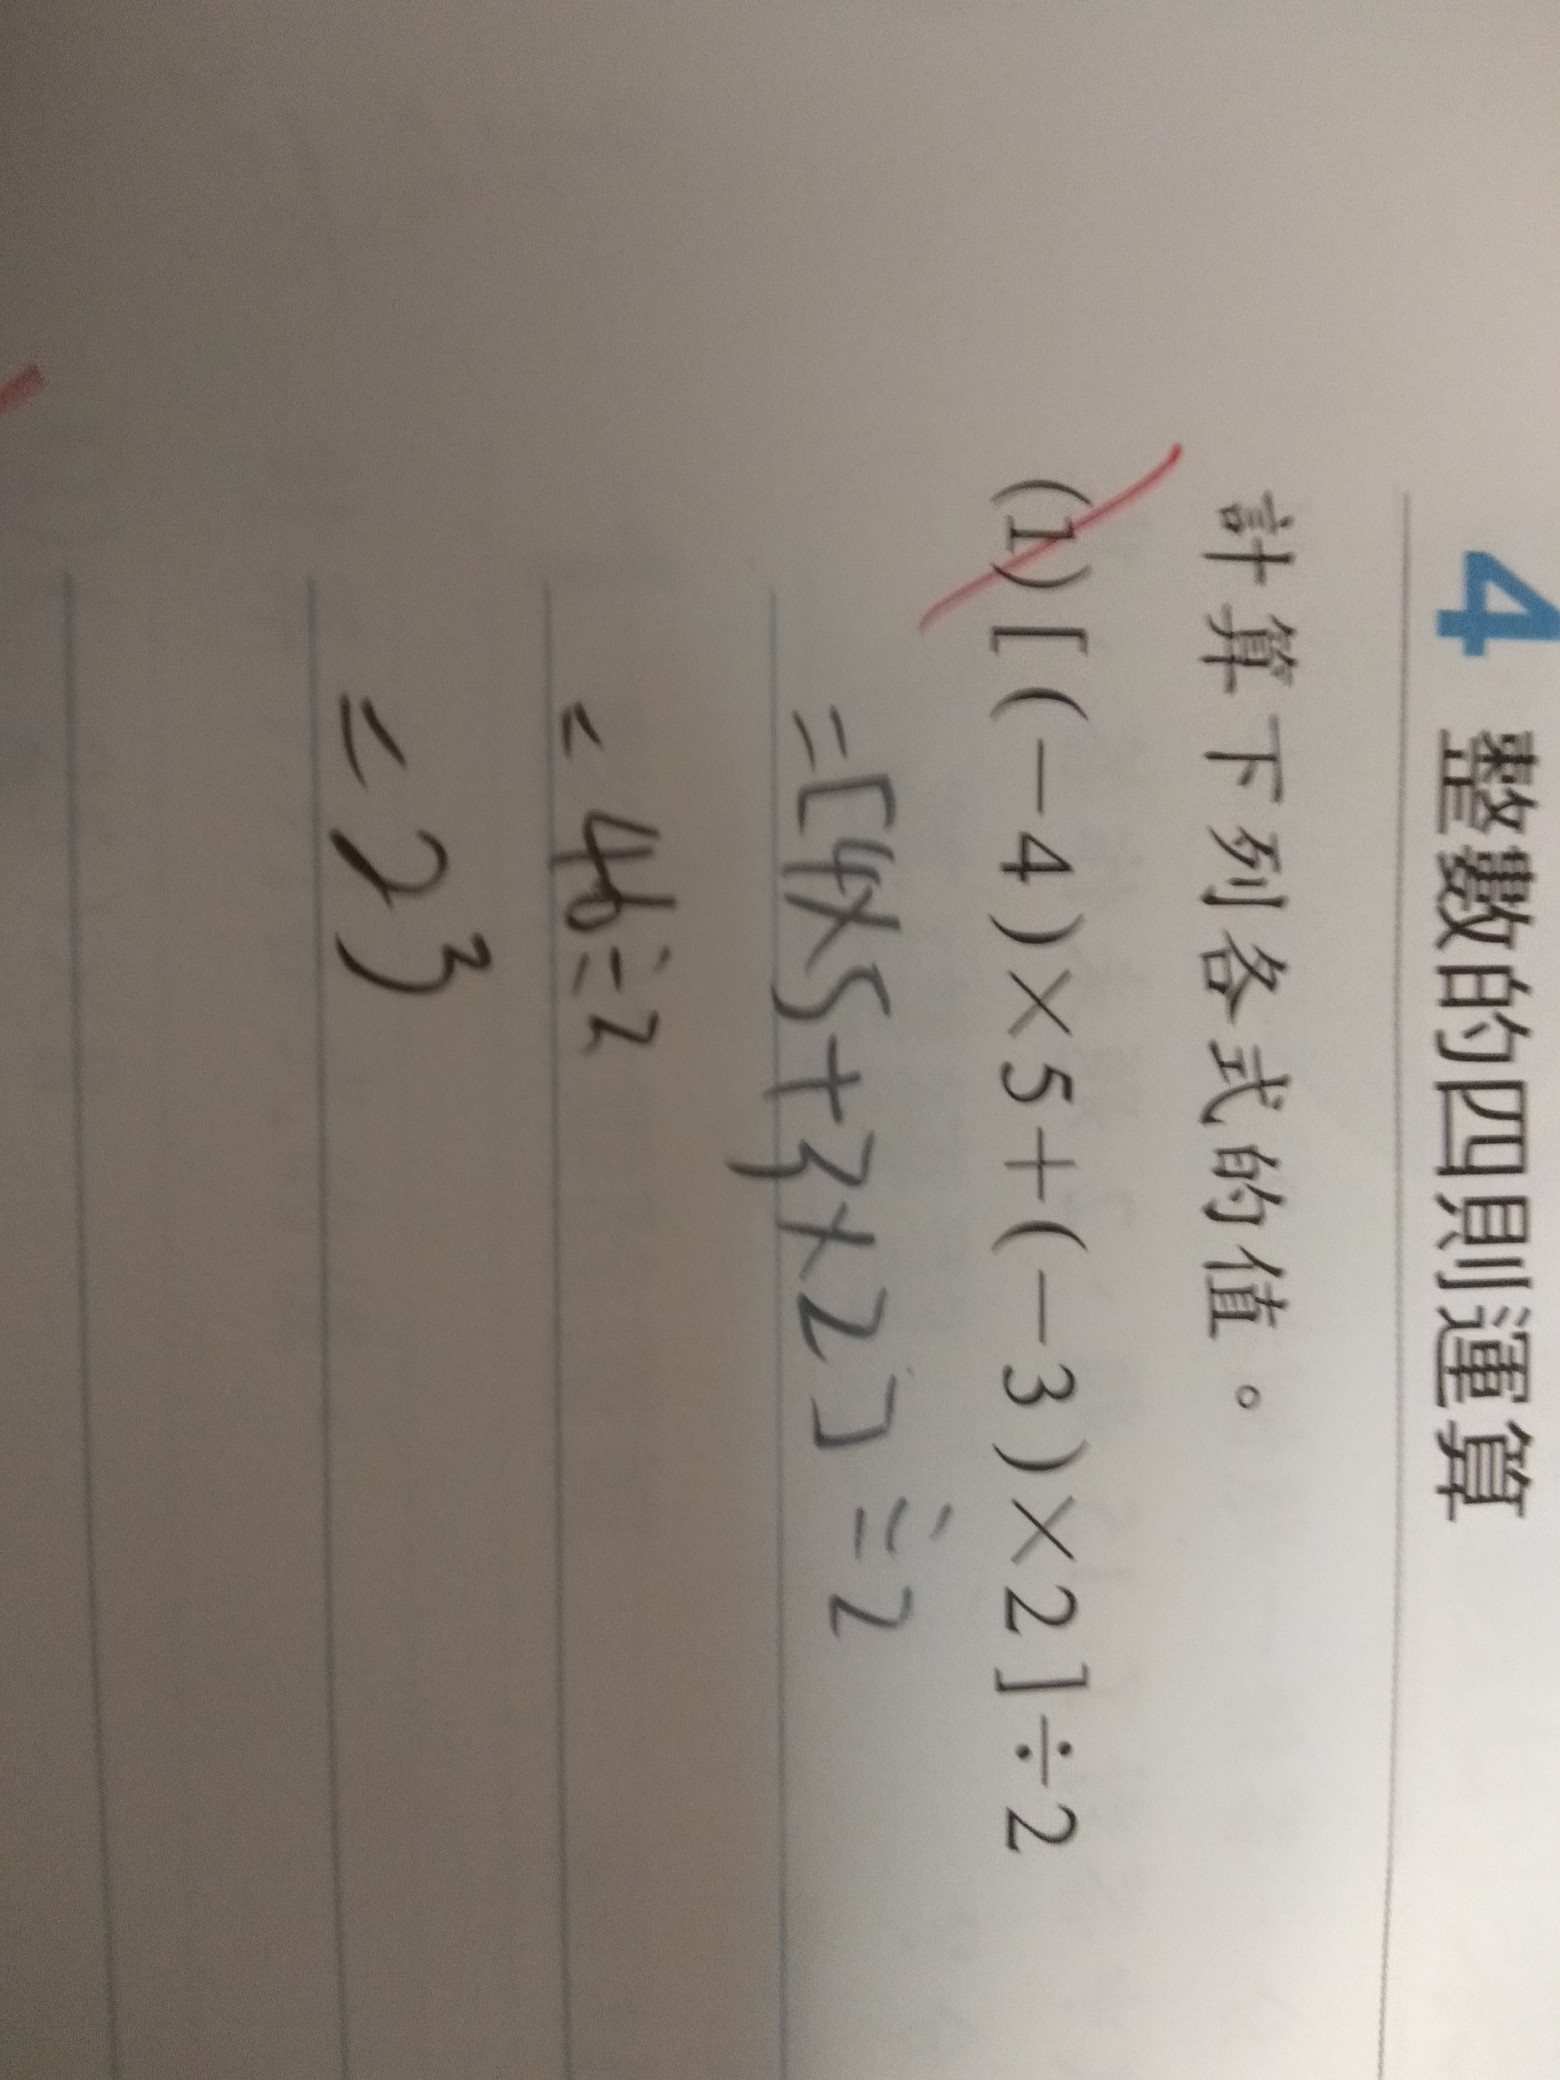 4 整數的四則運算
計算下列各式的值。
(1)[(-4)×5+(-3)×2]÷2
=[4×5+3×2]÷2
=46÷2
=23